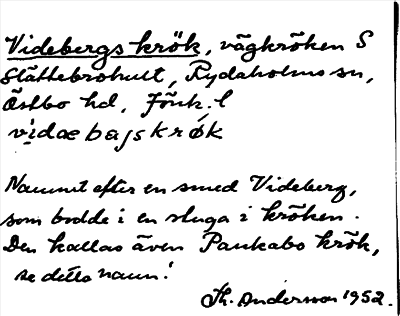 Videbergs krök, vägkröken S
Slättebrohult, Rydaholms sn,
Östbo hd, Jönk. l
vi̍dæbαjskrǿk
Namnet efter en smed Videberg,
som bodde i en stuga i kröken.
Den kallas även Pankabo krök,
se detta namn!
Th. Andersson 1952.